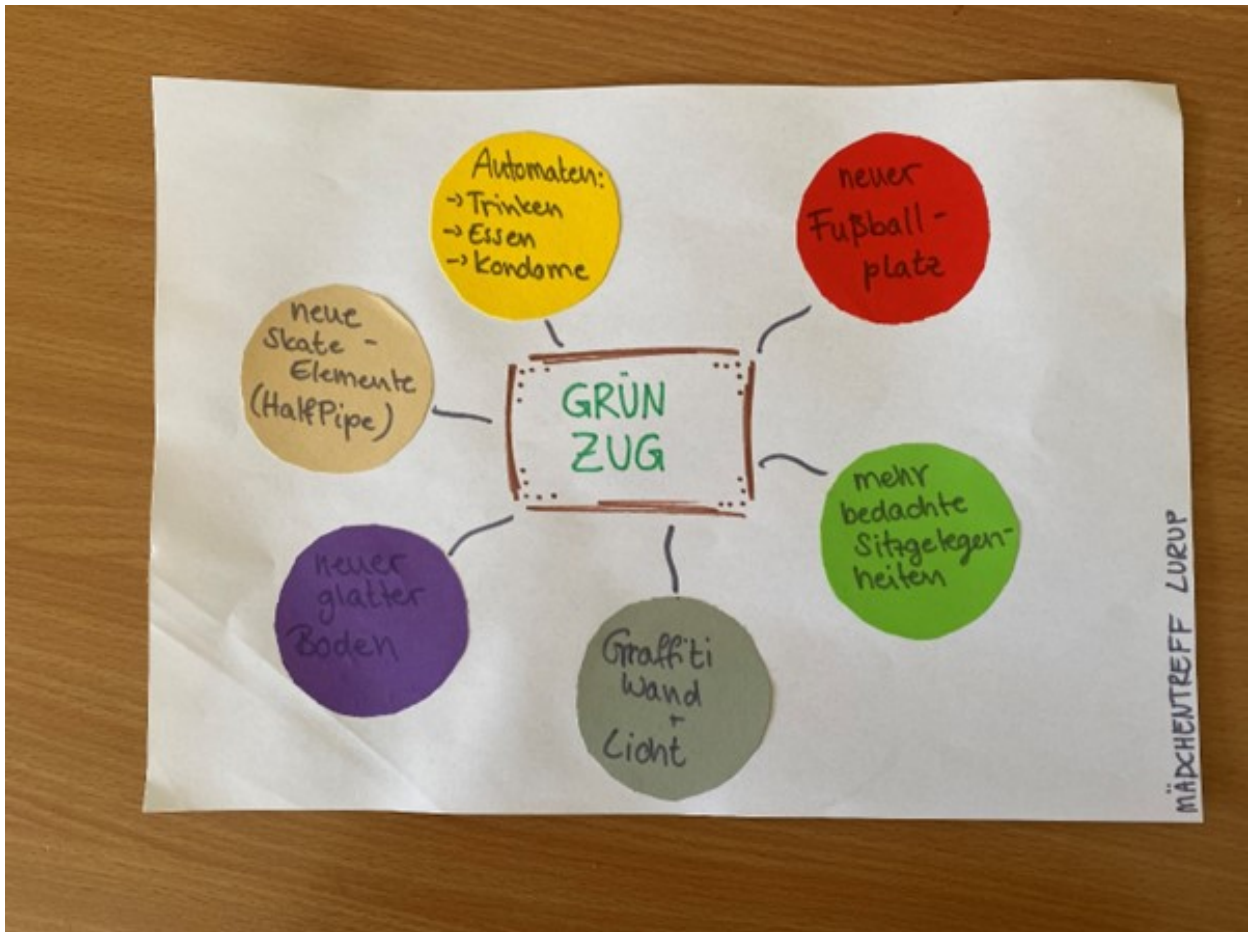 Automaten:
-> Trinken
-> Essen
-> Kondome
neuer
Fußball-
platz
neue
Skate-
Elemente
(HalfPipe)
GRÜN
ZUG
mehr
bedachte
Sitzgelegen-
heiten
neuer
glatter
Boden
Graffiti
Wand
+
Licht
MÄDCHENTREFF LURUP